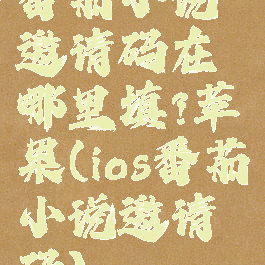 番茄小说
邀请码在
哪里填?苹
果(ios番茄
小说邀请
码)